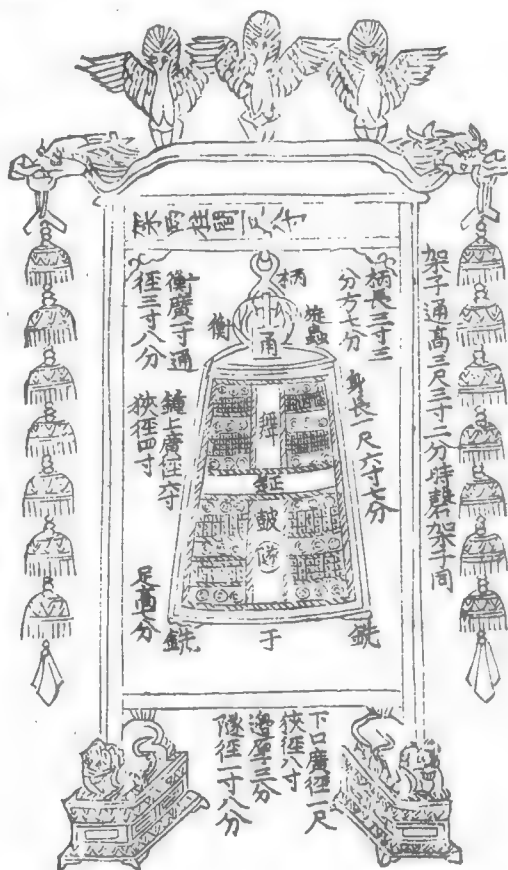 柱間
架子通高三尺三寸二分特磬架子同
柄長三寸三
分方七分
身長一尺六寸七分
柄
旋蟲
甬
衡
衡廣一寸通
徑三寸八分
鐘上廣徑六寸
狹徑四寸
舞
鉦
鼓
隧
足高
銑
于
銑
下口廣徑一尺
狹徑八寸
邊厚三分
隧徑一寸八分